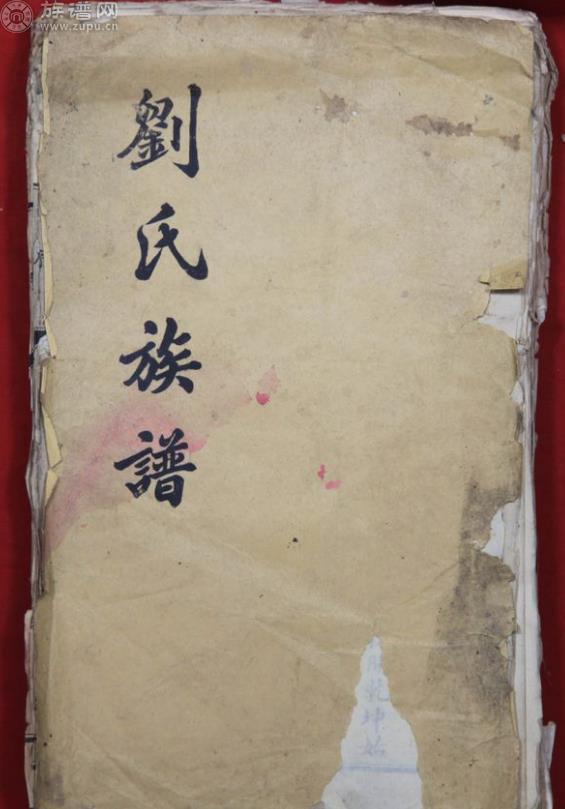 族谱网
www.zupu.cn
劉氏族譜
乾坤始